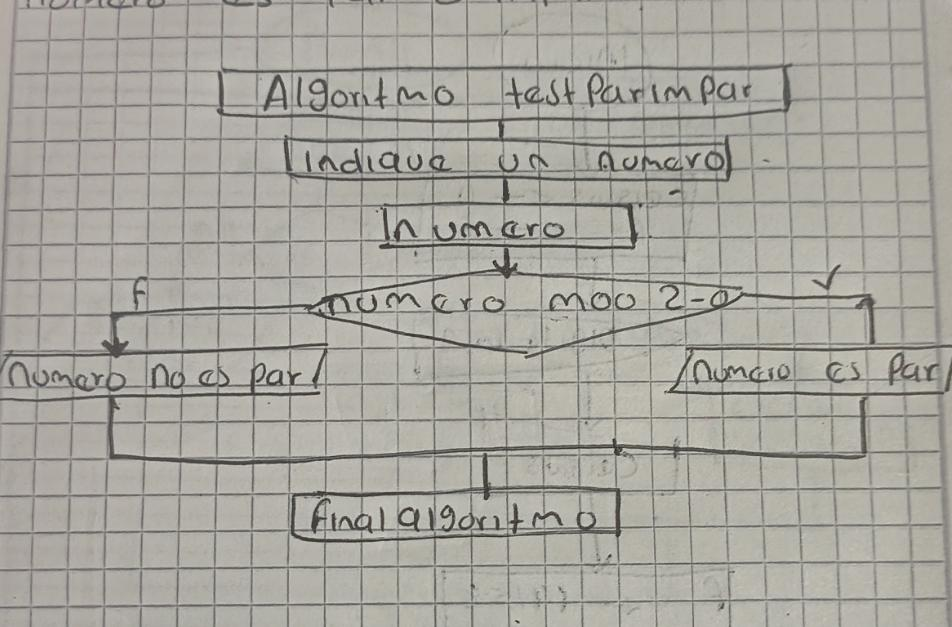 numero es par
Algoritmo testParimpar
indique un numero
numero
numero moo 2-0
f
v
numero no es par
numero es par
final algoritmo